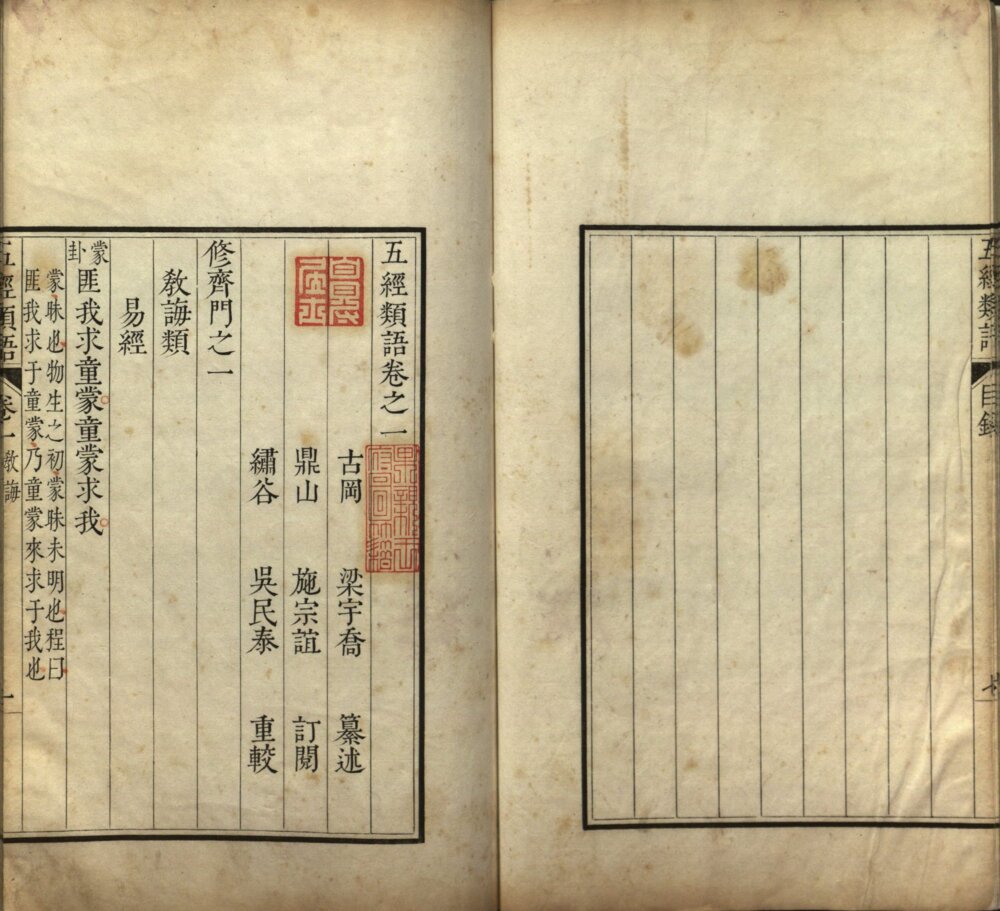 五經類語
目錄
五經類語卷之一
古岡 梁宇喬 纂述
鼎山 施宗誼 訂閱
繡谷 吳民泰 重較
修齊門之一
教誨類
易經
蒙卦 匪我求童蒙童蒙求我
蒙昧也物生之初蒙昧未明也程曰
匪我求于童蒙乃童蒙來求于我也
五經類語 卷一 教誨 一